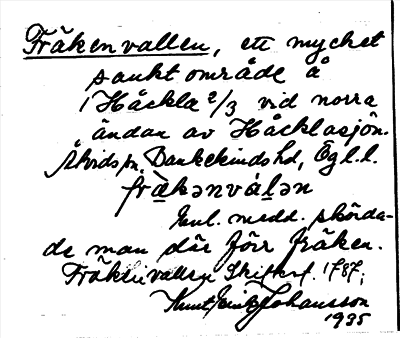 Fräkenvallen, ett mycket
sankt område å
1 Håckla 2/3 vid norra
ändan av Håcklasjön.
Åtvids sn. Bankekinds hd, Ögl. l.
frä̀kənválən
Enl. medd. skörda-
de man där förr fräken.
Fräkenvallen Skifteskt. 1787;
Knut Eric Johansson
1935